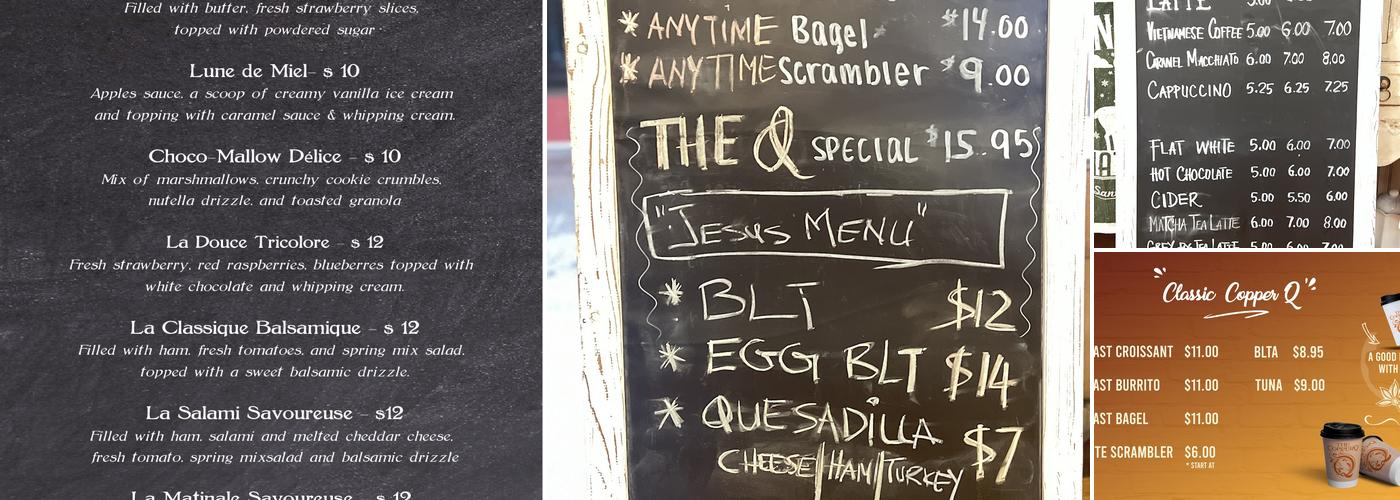 Filled with butter, fresh strawberry slices,
topped with powdered sugar
Lune de Miel- $ 10
Apples sauce, a scoop of creamy vanilla ice cream
and topping with caramel sauce & whipping cream.
Choco-Mallow Délice - $ 10
Mix of marshmallows, crunchy cookie crumbles,
nutella drizzle, and toasted granola
La Douce Tricolore - $ 12
Fresh strawberry, red raspberries, blueberres topped with
white chocolate and whipping cream.
La Classique Balsamique - $ 12
Filled with ham, fresh tomatoes, and spring mix salad,
topped with a sweet balsamic drizzle.
La Salami Savoureuse - $12
Filled with ham, salami and melted cheddar cheese,
fresh tomato, spring mixsalad and balsamic drizzle
La Matinale Savoureuse - $ 12
* ANYTIME Bagel $14.00
* ANYTIME Scrambler $9.00
THE Q SPECIAL $15.95
"JESUS MENU"
* BLT $12
* EGG BLT $14
* QUESADILLA $7
CHEESE/HAM/TURKEY
LATTE
VIETNAMESE COFFEE 5.00 6.00 7.00
CARAMEL MACCHIATO 6.00 7.00 8.00
CAPPUCCINO 5.25 6.25 7.25
FLAT WHITE 5.00 6.00 7.00
HOT CHOCOLATE 5.00 6.00 7.00
CIDER 5.00 5.50 6.00
MATCHA TEA LATTE 6.00 7.00 8.00
TEA LATTE 5.00 6.00 7.00
"Classic Copper Q"
AST CROISSANT $11.00 BLTA $8.95
AST BURRITO $11.00 TUNA $9.00
AST BAGEL $11.00
TE SCRAMBLER $6.00
* START AT
A GOOD
WITH